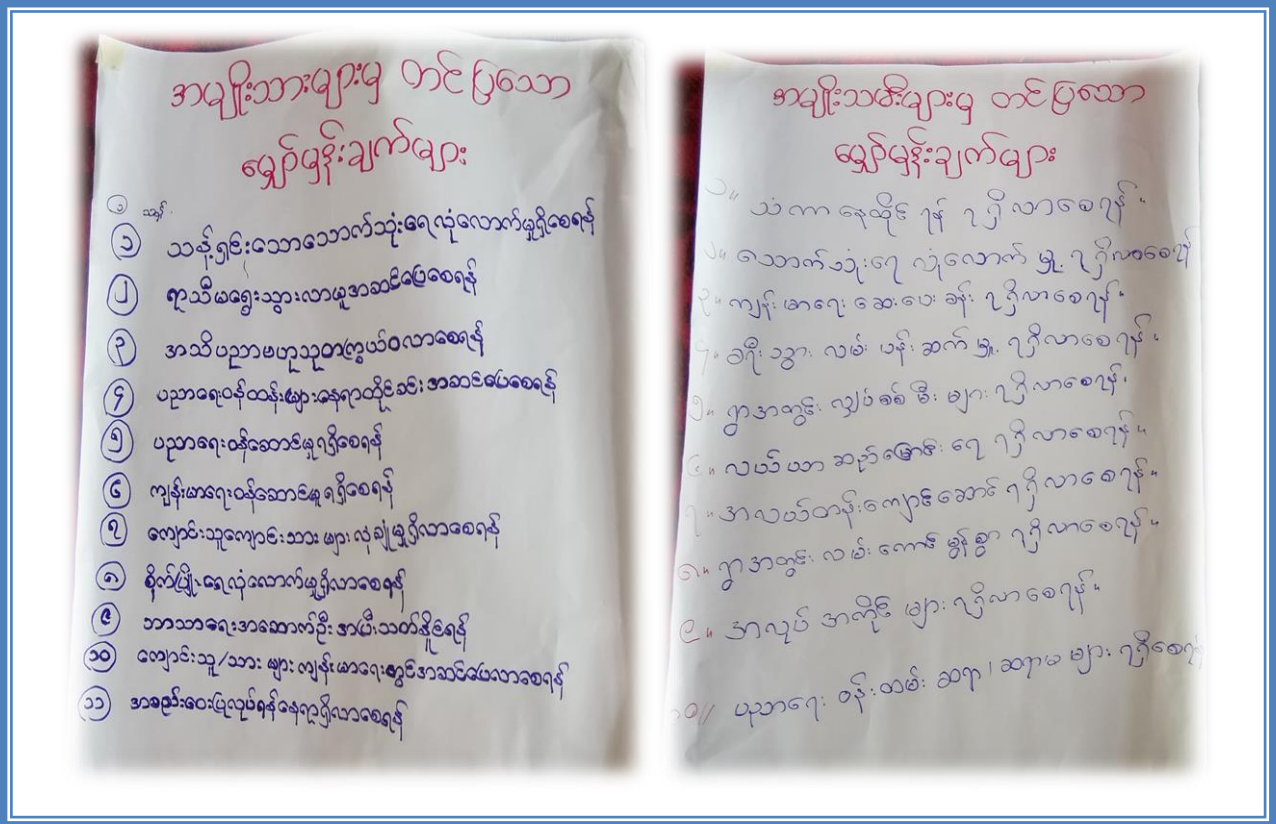 အမျိုးသားများမှ တင်ပြသော
မျှော်မှန်းချက်များ
၁
၁ သန့်ရှင်းသောသောက်သုံးရေလုံလောက်မှုရှိစေရန်
၂ ရာသီမရွေးသွားလာမှုအဆင်ပြေစေရန်
၃ အသိပညာဗဟုသုတကြွယ်ဝလာစေရန်
၄ ပညာရေးဝန်ထမ်းများနေရာထိုင်ခင်းအဆင်ပြေစေရန်
၅ ပညာရေးဝန်ဆောင်မှုရရှိစေရန်
၆ ကျန်းမာရေးဝန်ဆောင်မှုရရှိစေရန်
၇ ကျောင်းသူကျောင်းသားများလုံချုံမှုရှိလာစေရန်
၈ စိုက်ပျိုးရေလုံလောက်မှုရှိလာစေရန်
၉ ဘာသာရေးအဆောက်ဦးအပြီးသတ်နိုင်ရန်
၁၀ ကျောင်းသူ/သားများကျန်းမာရေးတွင်အဆင်ပြေလာစေရန်
၁၁ အစည်းဝေးပြုလုပ်ရန်နေရာရှိလာစေရန်
အမျိုးသမီးများမှ တင်ပြသော
မျှော်မှန်းချက်များ
၁။ သံဃာနေထိုင်ရန် ရရှိလာစေရန်။
၂။ သောက်သုံးရေ လုံလောက်မှု ရရှိလာစေရန်
၃။ ကျန်းမာရေး ဆေးပေးခန်း ရရှိလာစေရန်။
၄။ ခရီးသွား လမ်းပန်းဆက်မှု ရရှိလာစေရန်။
၅။ ရွာအတွင်း လျှပ်စစ်မီးများ ရရှိလာစေရန်။
၆။ လယ်ယာဆည်မြောင်းရေ ရရှိလာစေရန်။
၇။ အလယ်တန်းကျောင်းဆောင် ရရှိလာစေရန်။
၈။ ရွာအတွင်း လမ်းကောင်းမွန်စွာ ရရှိလာစေရန်။
၉။ အလုပ်အကိုင်များ ရရှိလာစေရန်။
၁၀။ ပညာရေးဝန်းထမ်း ဆရာ၊ဆရာမများ ရရှိစေရန်